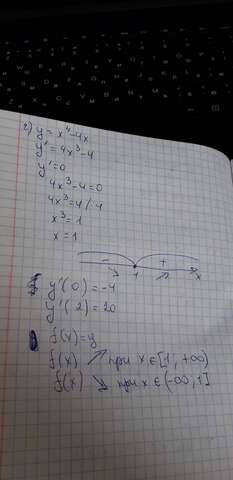 г) y = x⁴-4x
y' = 4x³-4
y' = 0
4x³-4=0
4x³=4 /:4
x³=1
x=1
- +
1 x
y'(0) = -4
y'(2) = 20
f(x) = y
f(x) ↗ при x ∈ [1; +∞)
f(x) ↘ при x ∈ (-∞; 1]